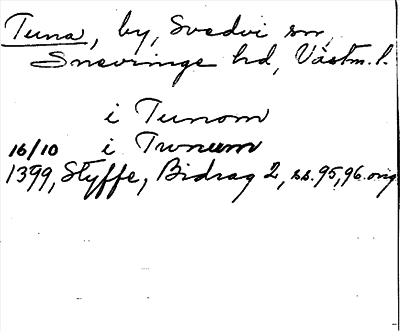 Tuna, by, Svedvi sn,
Snevringe hd, Västm. l.
i Tunom
16/10 i Twnum
1399, Styffe, Bidrag 2, ss. 95, 96. orig.